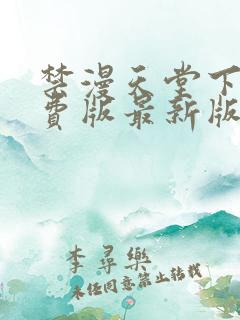 禁漫天堂下
费版最新版
李尋樂
未经同意禁止转载